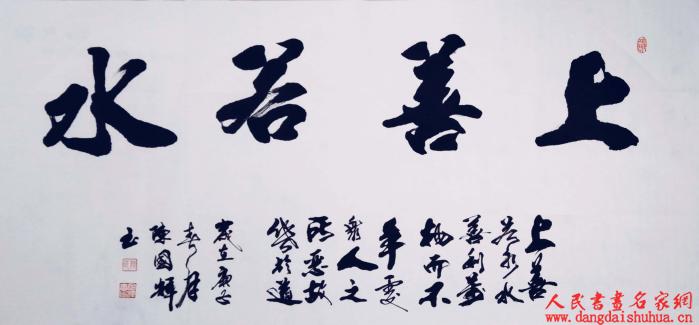 上善若水
上善
若水水
善利萬
物而不
爭處
眾人之
所惡故
幾於道
歲在庚子
春月
陳國輝
書
人民書畫名家網
www.dangdaishuhua.cn